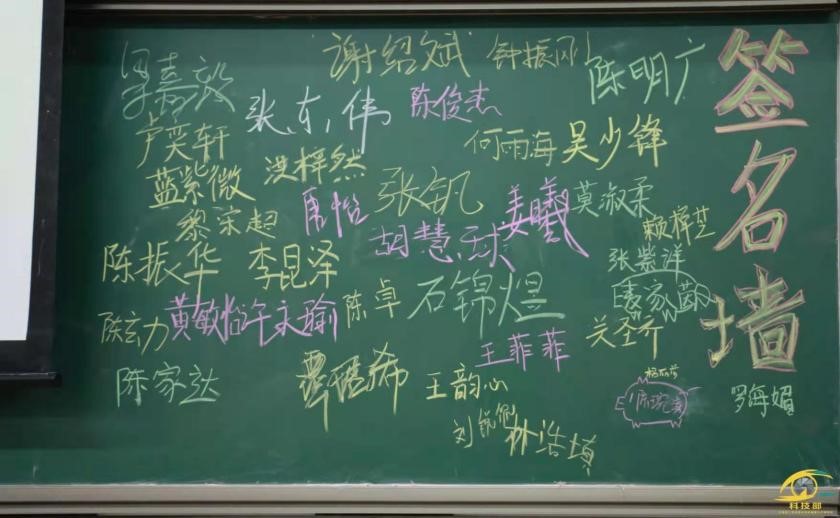 签名墙
谢绍斌 钟振刚
陈明广
梁嘉毅
张东伟 陈俊杰
卢奕轩 何雨海 吴少锋
蓝紫微 洪梓然
唐怡 张钒 姜曦 莫淑柔
黎宗超 胡慧球
陈振华 李昆泽 张崇洋
陈卓 石锦煜
陈玄力 黄敏怡 许永瑜 关圣齐
王菲菲
陈家达 王韵心
罗海媚
林浩填
科技部